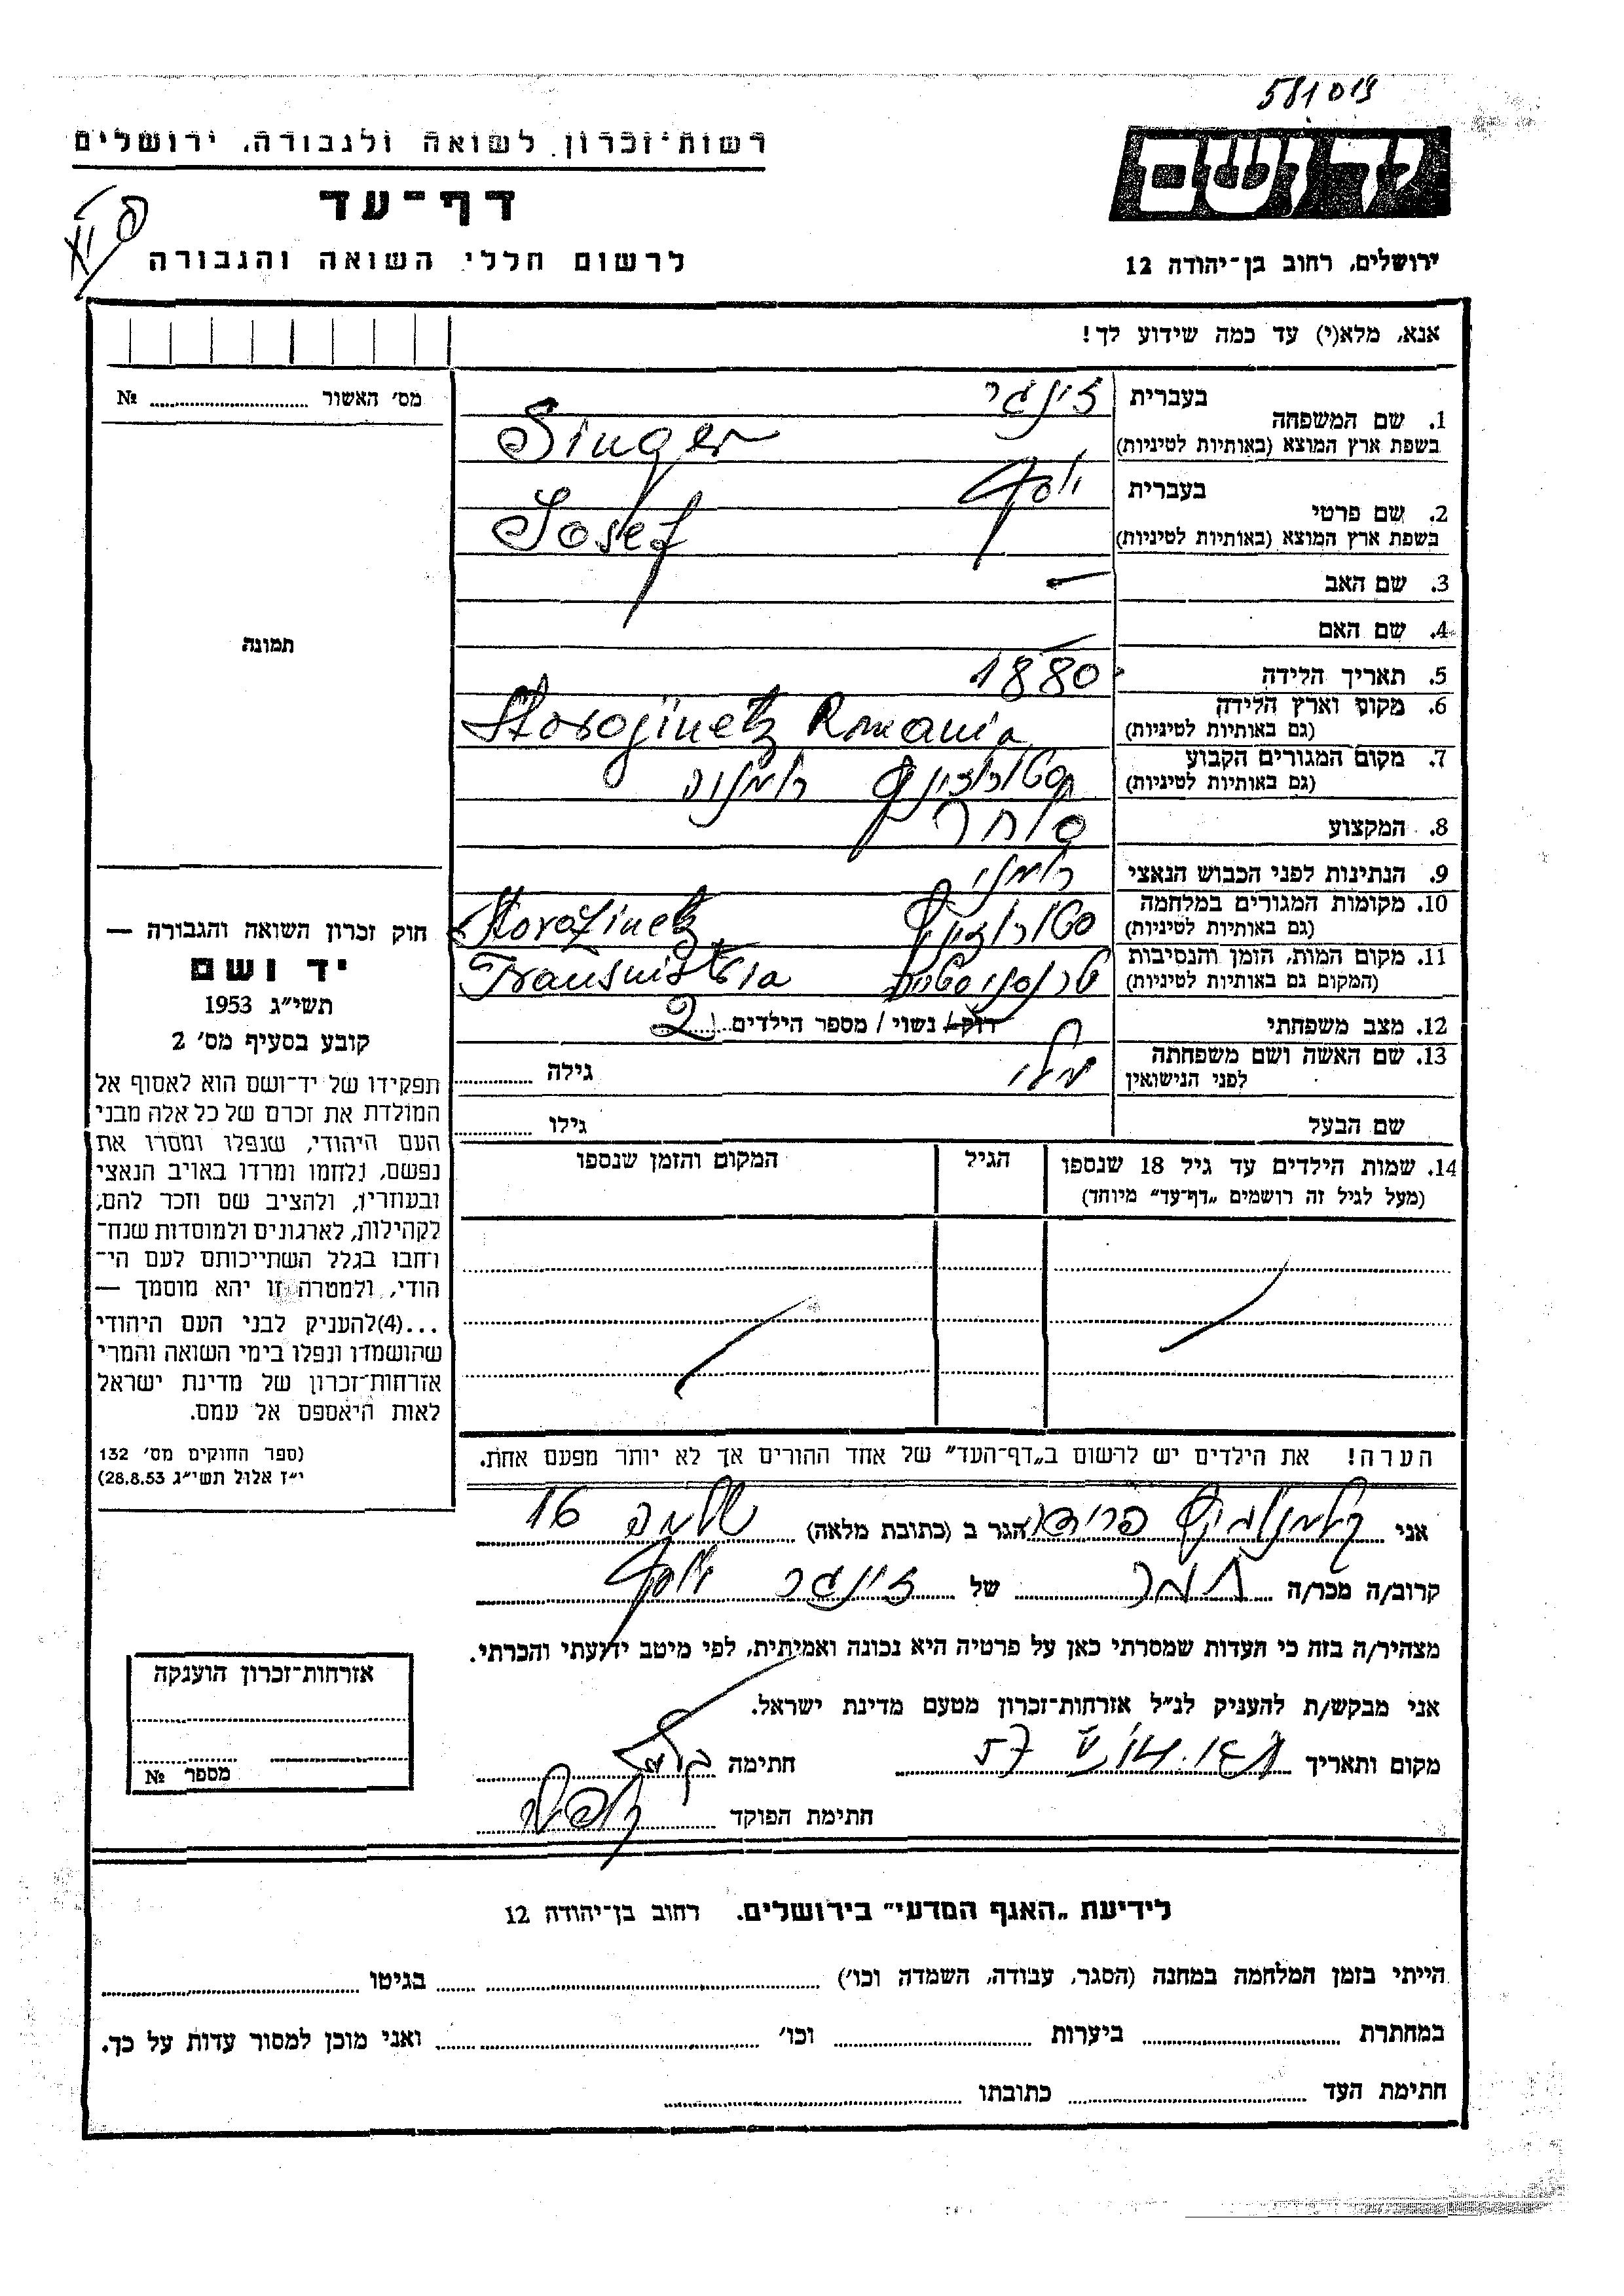 581019
רשות־זכרון לשואה ולגבורה, ירושלים
יד ושם
דף־עד
לרשום חללי השואה והגבורה
ירושלים, רחוב בן־יהודה 12
אנא, מלא(י) עד כמה שידוע לך!
מס' האשור № 
1. שם המשפחה בעברית זינגר
בשפת ארץ המוצא (באותיות לטיניות) Singer
2. שם פרטי בעברית יוסף
בשפת ארץ המוצא (באותיות לטיניות) Josef
3. שם האב
4. שם האם
תמונה
5. תאריך הלידה 1880
6. מקום וארץ הלידה (גם באותיות לטיניות) Storojinetz Romania
7. מקום המגורים הקבוע (גם באותיות לטיניות) רומניה
8. המקצוע סוחר
9. הנתינות לפני הכבוש הנאצי רומני
10. מקומות המגורים במלחמה (גם באותיות לטיניות) Storozinetz
11. מקום המות, הזמן והנסיבות (המקום גם באותיות לטיניות) Transnistria
12. מצב משפחתי רוק / נשוי / מספר הילדים 2
13. שם האשה ושם משפחתה לפני הנישואין מלי גילה
שם הבעל גילו
14. שמות הילדים עד גיל 18 שנספו הגיל המקום והזמן שנספו
(מעל לגיל זה רושמים „דף־עד" מיוחד)
הערה! את הילדים יש לרשום ב„דף־העד" של אחד ההורים אך לא יותר מפעם אחת.
חוק זכרון השואה והגבורה —
יד ושם
תשי"ג 1953
קובע בסעיף מס' 2
תפקידו של יד־ושם הוא לאסוף אל
המולדת את זכרם של כל אלה מבני
העם היהודי, שנפלו ומסרו את
נפשם, נלחמו ומרדו באויב הנאצי
ובעוזריו, ולהציב שם וזכר להם,
לקהילות, לארגונים ולמוסדות שנח־
רחבו בגלל השתייכותם לעם הי־
הודי, ולמטרה זו יהא מוסמך —
...(4)להעניק לבני העם היהודי
שהושמדו ונפלו בימי השואה והמרי
אזרחות־זכרון של מדינת ישראל
לאות היאספם אל עמם.
(ספר החוקים מס' 132
י"ז אלול תשי"ג 28.8.53)
אני קלמנוביץ הגר ב (כתובת מלאה) שלמה 16
קרוב/ה מכר/ה של זינגר יוסף
מצהיר/ה בזה כי העדות שמסרתי כאן על פרטיה היא נכונה ואמיתית, לפי מיטב ידיעתי והכרתי.
אני מבקש/ת להעניק לנ"ל אזרחות־זכרון מטעם מדינת ישראל.
מקום ותאריך 57 חתימה
חתימת הפוקד
אזרחות־זכרון הוענקה
מספר №
לידיעת „האגף המדעי" בירושלים. רחוב בן־יהודה 12
הייתי בזמן המלחמה במחנה (הסגר, עבודה, השמדה וכו') בגיטו
במחתרת ביערות וכו' ואני מוכן למסור עדות על כך.
חתימת העד כתובתו